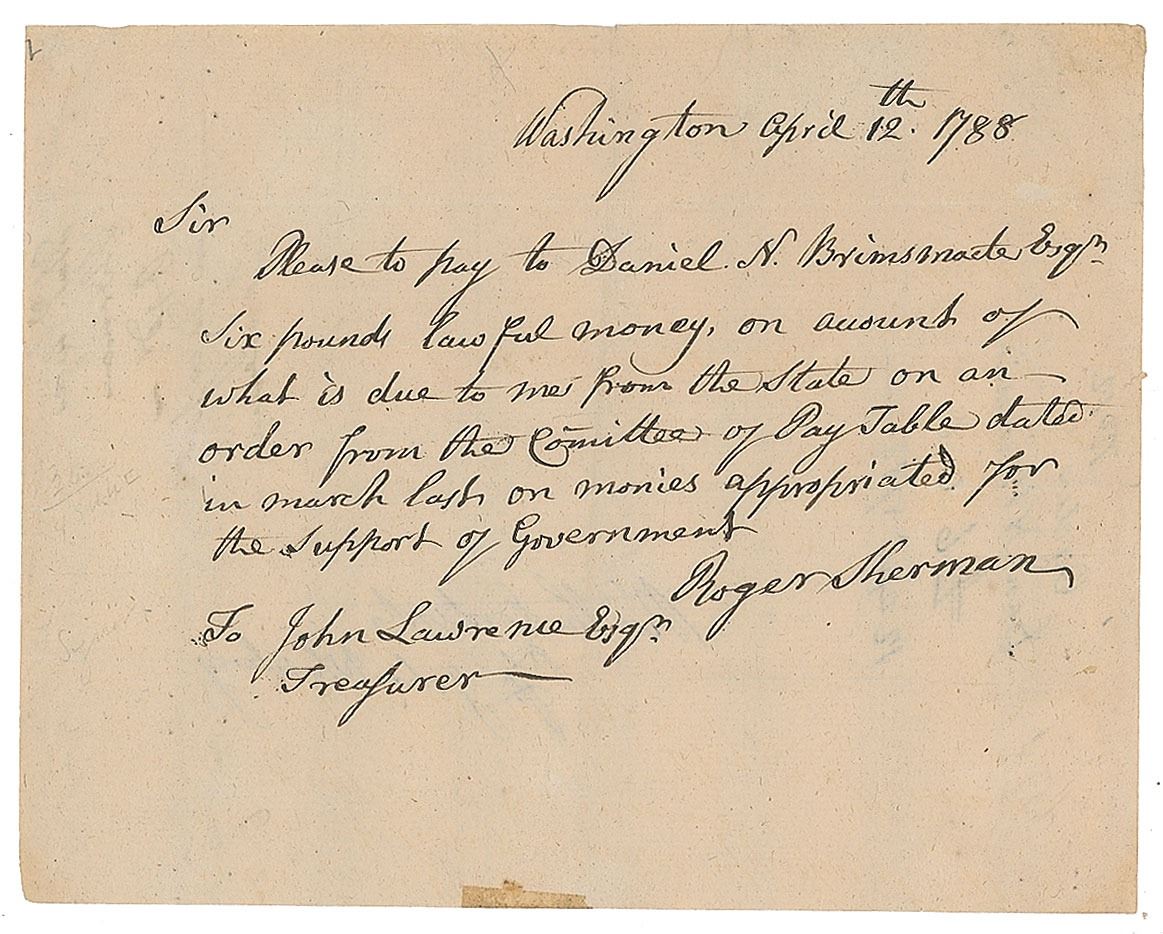 Washington April 12th. 1788
Sir
Please to pay to Daniel. N. Brinsmade Esqr
Six pounds lawful money, on account of
what is due to me from the State on an
order from the Comittee of Pay Table dated
in march last on monies appropriated for
the Support of Government
Roger Sherman
To John Lawrence Esqr
Treasurer